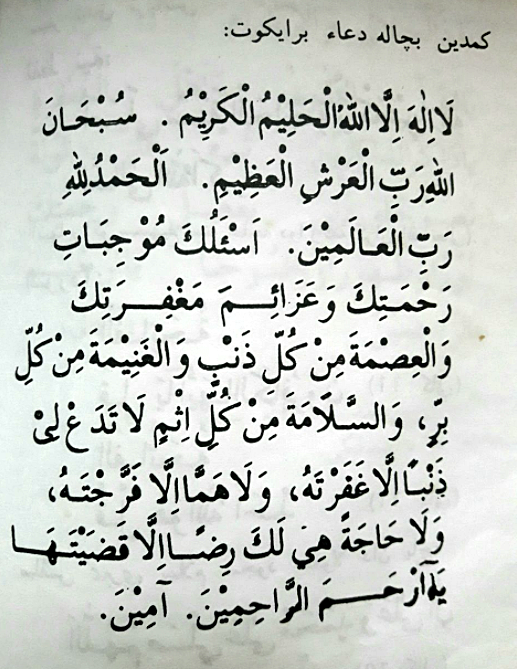 كمدين بچاله دعاء برايكوت:
لَااِلٰهَ اِلَّا اللهُ الْحَلِيْمُ الْكَرِيْمُ . سُبْحَانَ
اللهِ رَبِّ الْعَرْشِ الْعَظِيْمِ. اَلْحَمْدُ لِلّٰهِ
رَبِّ الْعَالَمِيْنَ. اَسْئَلُكَ مُوْجِبَاتِ
رَحْمَتِكَ وَعَزَائِمَ مَغْفِرَتِكَ
وَالْعِصْمَةَ مِنْ كُلِّ ذَنْبٍ وَالْغَنِيْمَةَ مِنْ كُلِّ
بِرٍّ، وَالسَّلَامَةَ مِنْ كُلِّ اِثْمٍ لَا تَدَعْ لِيْ
ذَنْبًا اِلَّا غَفَرْتَهُ، وَلَا هَمًّا اِلَّا فَرَّجْتَهُ،
وَلَا حَاجَةً هِيَ لَكَ رِضًا اِلَّا قَضَيْتَهَا
يَآاَرْحَمَ الرَّاحِمِيْنَ. آمِيْنَ.